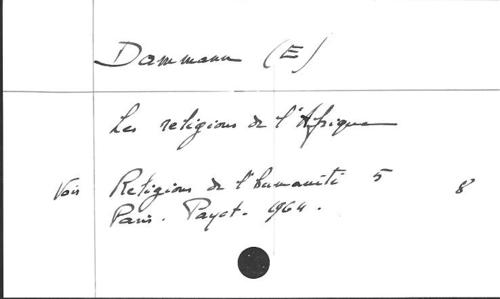 Dammann (E)
Les religions de l'Afrique
Voir Religions de l'humanité 5 8
Paris. Payot. 1964.